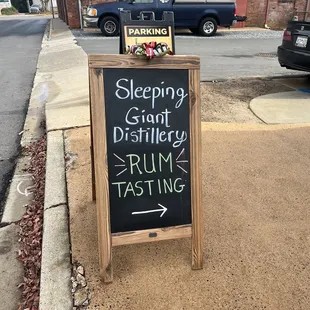 PARKING
Sleeping
Giant
Distillery
RUM
TASTING